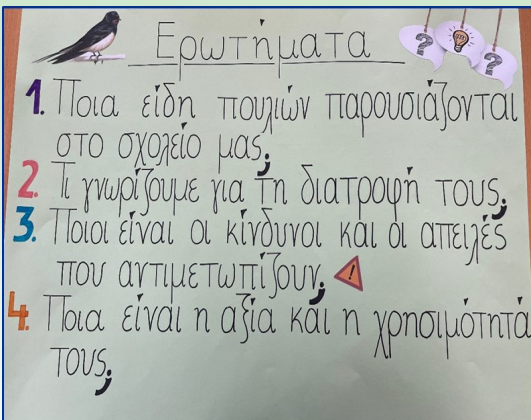 Ερωτήματα
? ?
1. Ποια είδη πουλιών παρουσιάζονται
στο σχολείο μας;
2. Τι γνωρίζουμε για τη διατροφή τους;
3. Ποιοι είναι οι κίνδυνοι και οι απειλές
που αντιμετωπίζουν; !
4. Ποια είναι η αξία και η χρησιμότητά
τους;